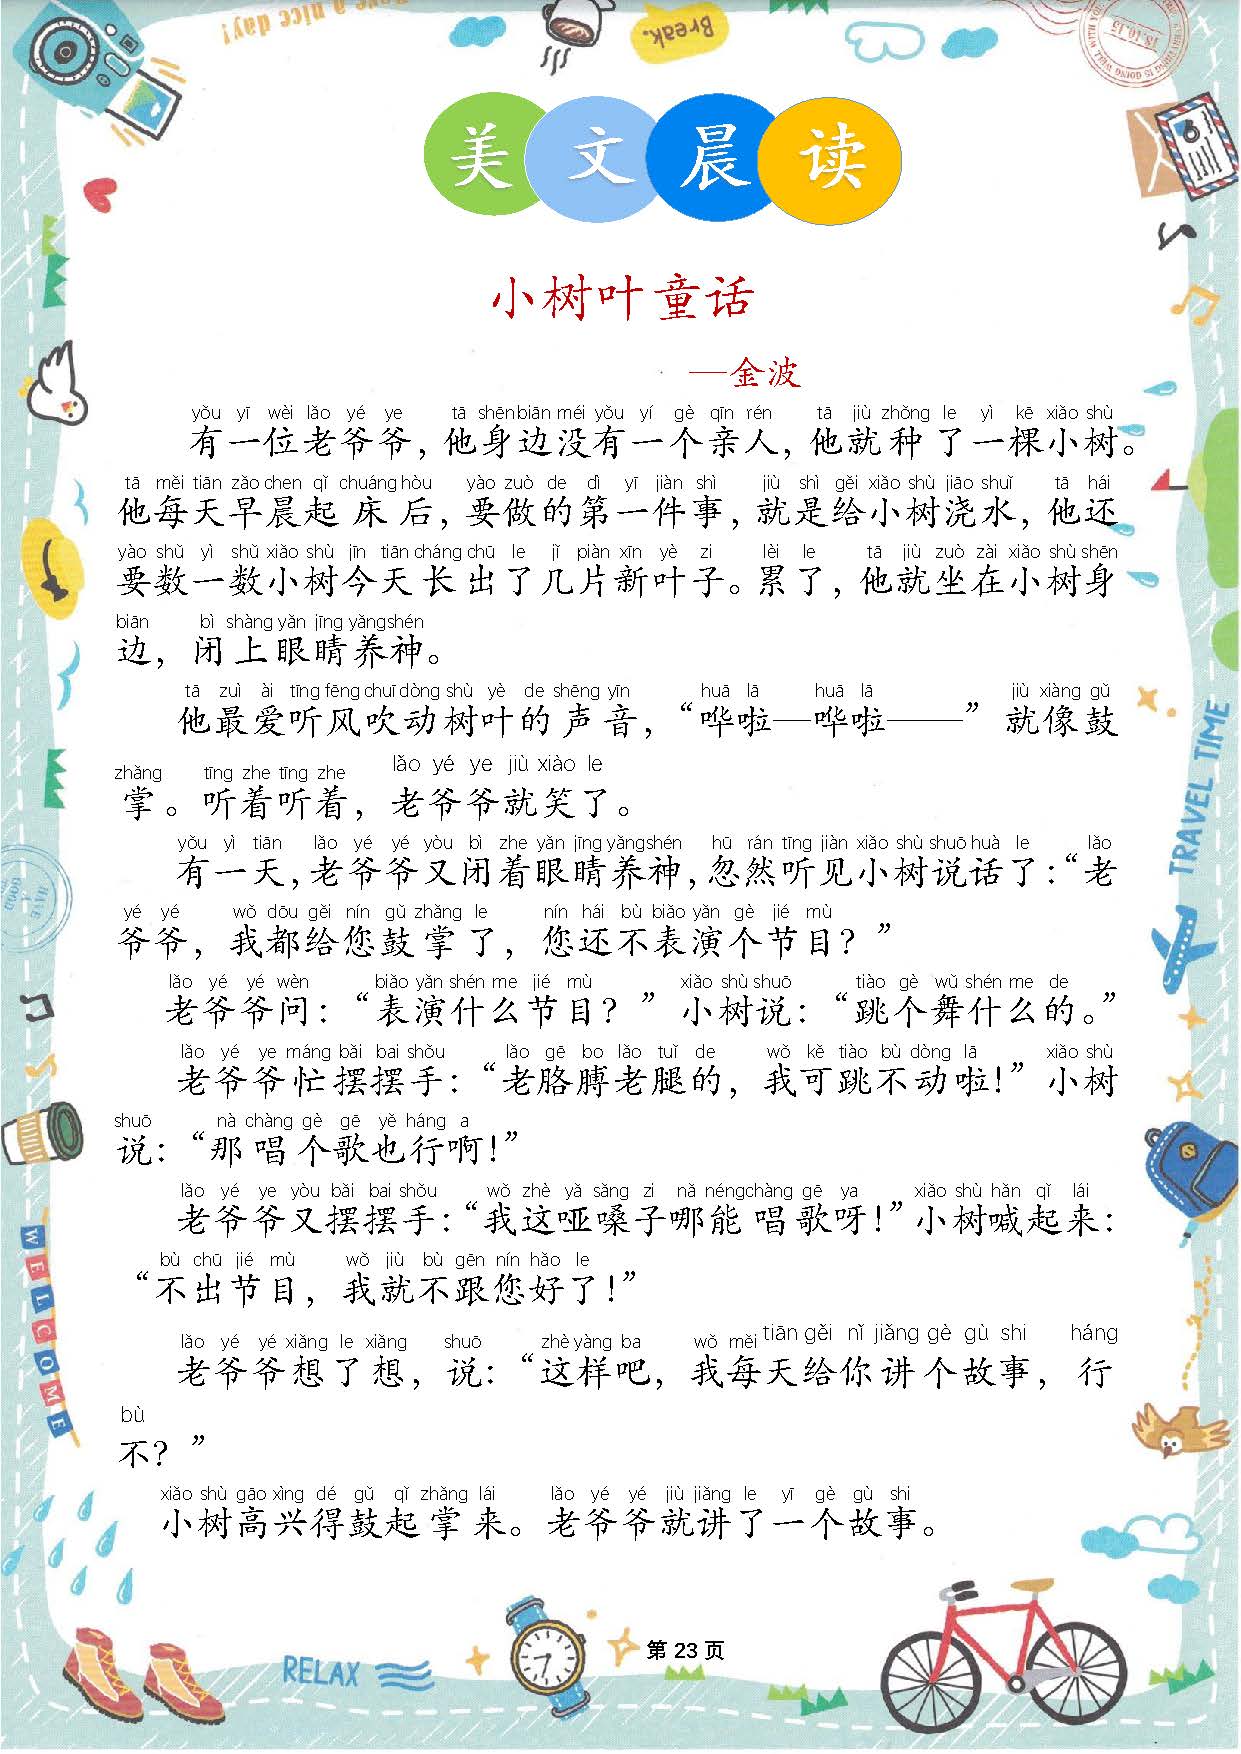 Have a nice day!
Break.
18.10.15
美文晨读
小树叶童话
—金波
yǒu yī wèi lǎo yé ye tā shēnbiān méi yǒu yí gè qīn rén tā jiù zhǒng le yì kē xiǎo shù
有一位老爷爷，他身边没有一个亲人，他就种了一棵小树。
tā měi tiān zǎo chen qǐ chuáng hòu yào zuò de dì yī jiàn shì jiù shì gěi xiǎo shù jiāo shuǐ tā hái
他每天早晨起床后，要做的第一件事，就是给小树浇水，他还
yào shǔ yì shǔ xiǎo shù jīn tiān cháng chū le jǐ piàn xīn yè zi lèi le tā jiù zuò zài xiǎo shù shēn
要数一数小树今天长出了几片新叶子。累了，他就坐在小树身
biān bì shàng yǎn jīng yǎngshén
边，闭上眼睛养神。
tā zuì ài tīng fēng chuī dòng shù yè de shēng yīn huā lā huā lā jiù xiàng gǔ
他最爱听风吹动树叶的声音，“哗啦—哗啦——”就像鼓
zhǎng tīng zhe tīng zhe lǎo yé ye jiù xiào le
掌。听着听着，老爷爷就笑了。
yǒu yì tiān lǎo yé yé yòu bì zhe yǎn jīng yǎngshén hū rán tīng jiàn xiǎo shù shuō huà le lǎo
有一天，老爷爷又闭着眼睛养神，忽然听见小树说话了：“老
yé yé wǒ dōu gěi nín gǔ zhǎng le nín hái bù biǎo yǎn gè jié mù
爷爷，我都给您鼓掌了，您还不表演个节目？”
lǎo yé yé wèn biǎo yǎn shén me jié mù xiǎo shù shuō tiào gè wǔ shén me de
老爷爷问：“表演什么节目？”小树说：“跳个舞什么的。”
lǎo yé ye máng bǎi bai shǒu lǎo gē bo lǎo tuǐ de wǒ kě tiào bù dòng lā xiǎo shù
老爷爷忙摆摆手：“老胳膊老腿的，我可跳不动啦！”小树
shuō nà chàng gè gē yě háng a
说：“那唱个歌也行啊！”
lǎo yé ye yòu bǎi bai shǒu wǒ zhè yǎ sǎng zi nǎ néngchàng gē ya xiǎo shù hǎn qǐ lái
老爷爷又摆摆手：“我这哑嗓子哪能唱歌呀！”小树喊起来：
bù chū jié mù wǒ jiù bù gēn nín hǎo le
“不出节目，我就不跟您好了！”
lǎo yé yé xiǎng le xiǎng shuō zhè yàng ba wǒ měi tiān gěi nǐ jiǎng gè gù shi háng
老爷爷想了想，说：“这样吧，我每天给你讲个故事，行
bù
不？”
xiǎo shù gāo xìng dé gǔ qǐ zhǎng lái lǎo yé yé jiù jiǎng le yī gè gù shi
小树高兴得鼓起掌来。老爷爷就讲了一个故事。
TRAVEL TIME
WELCOME
RELAX
第 23 页